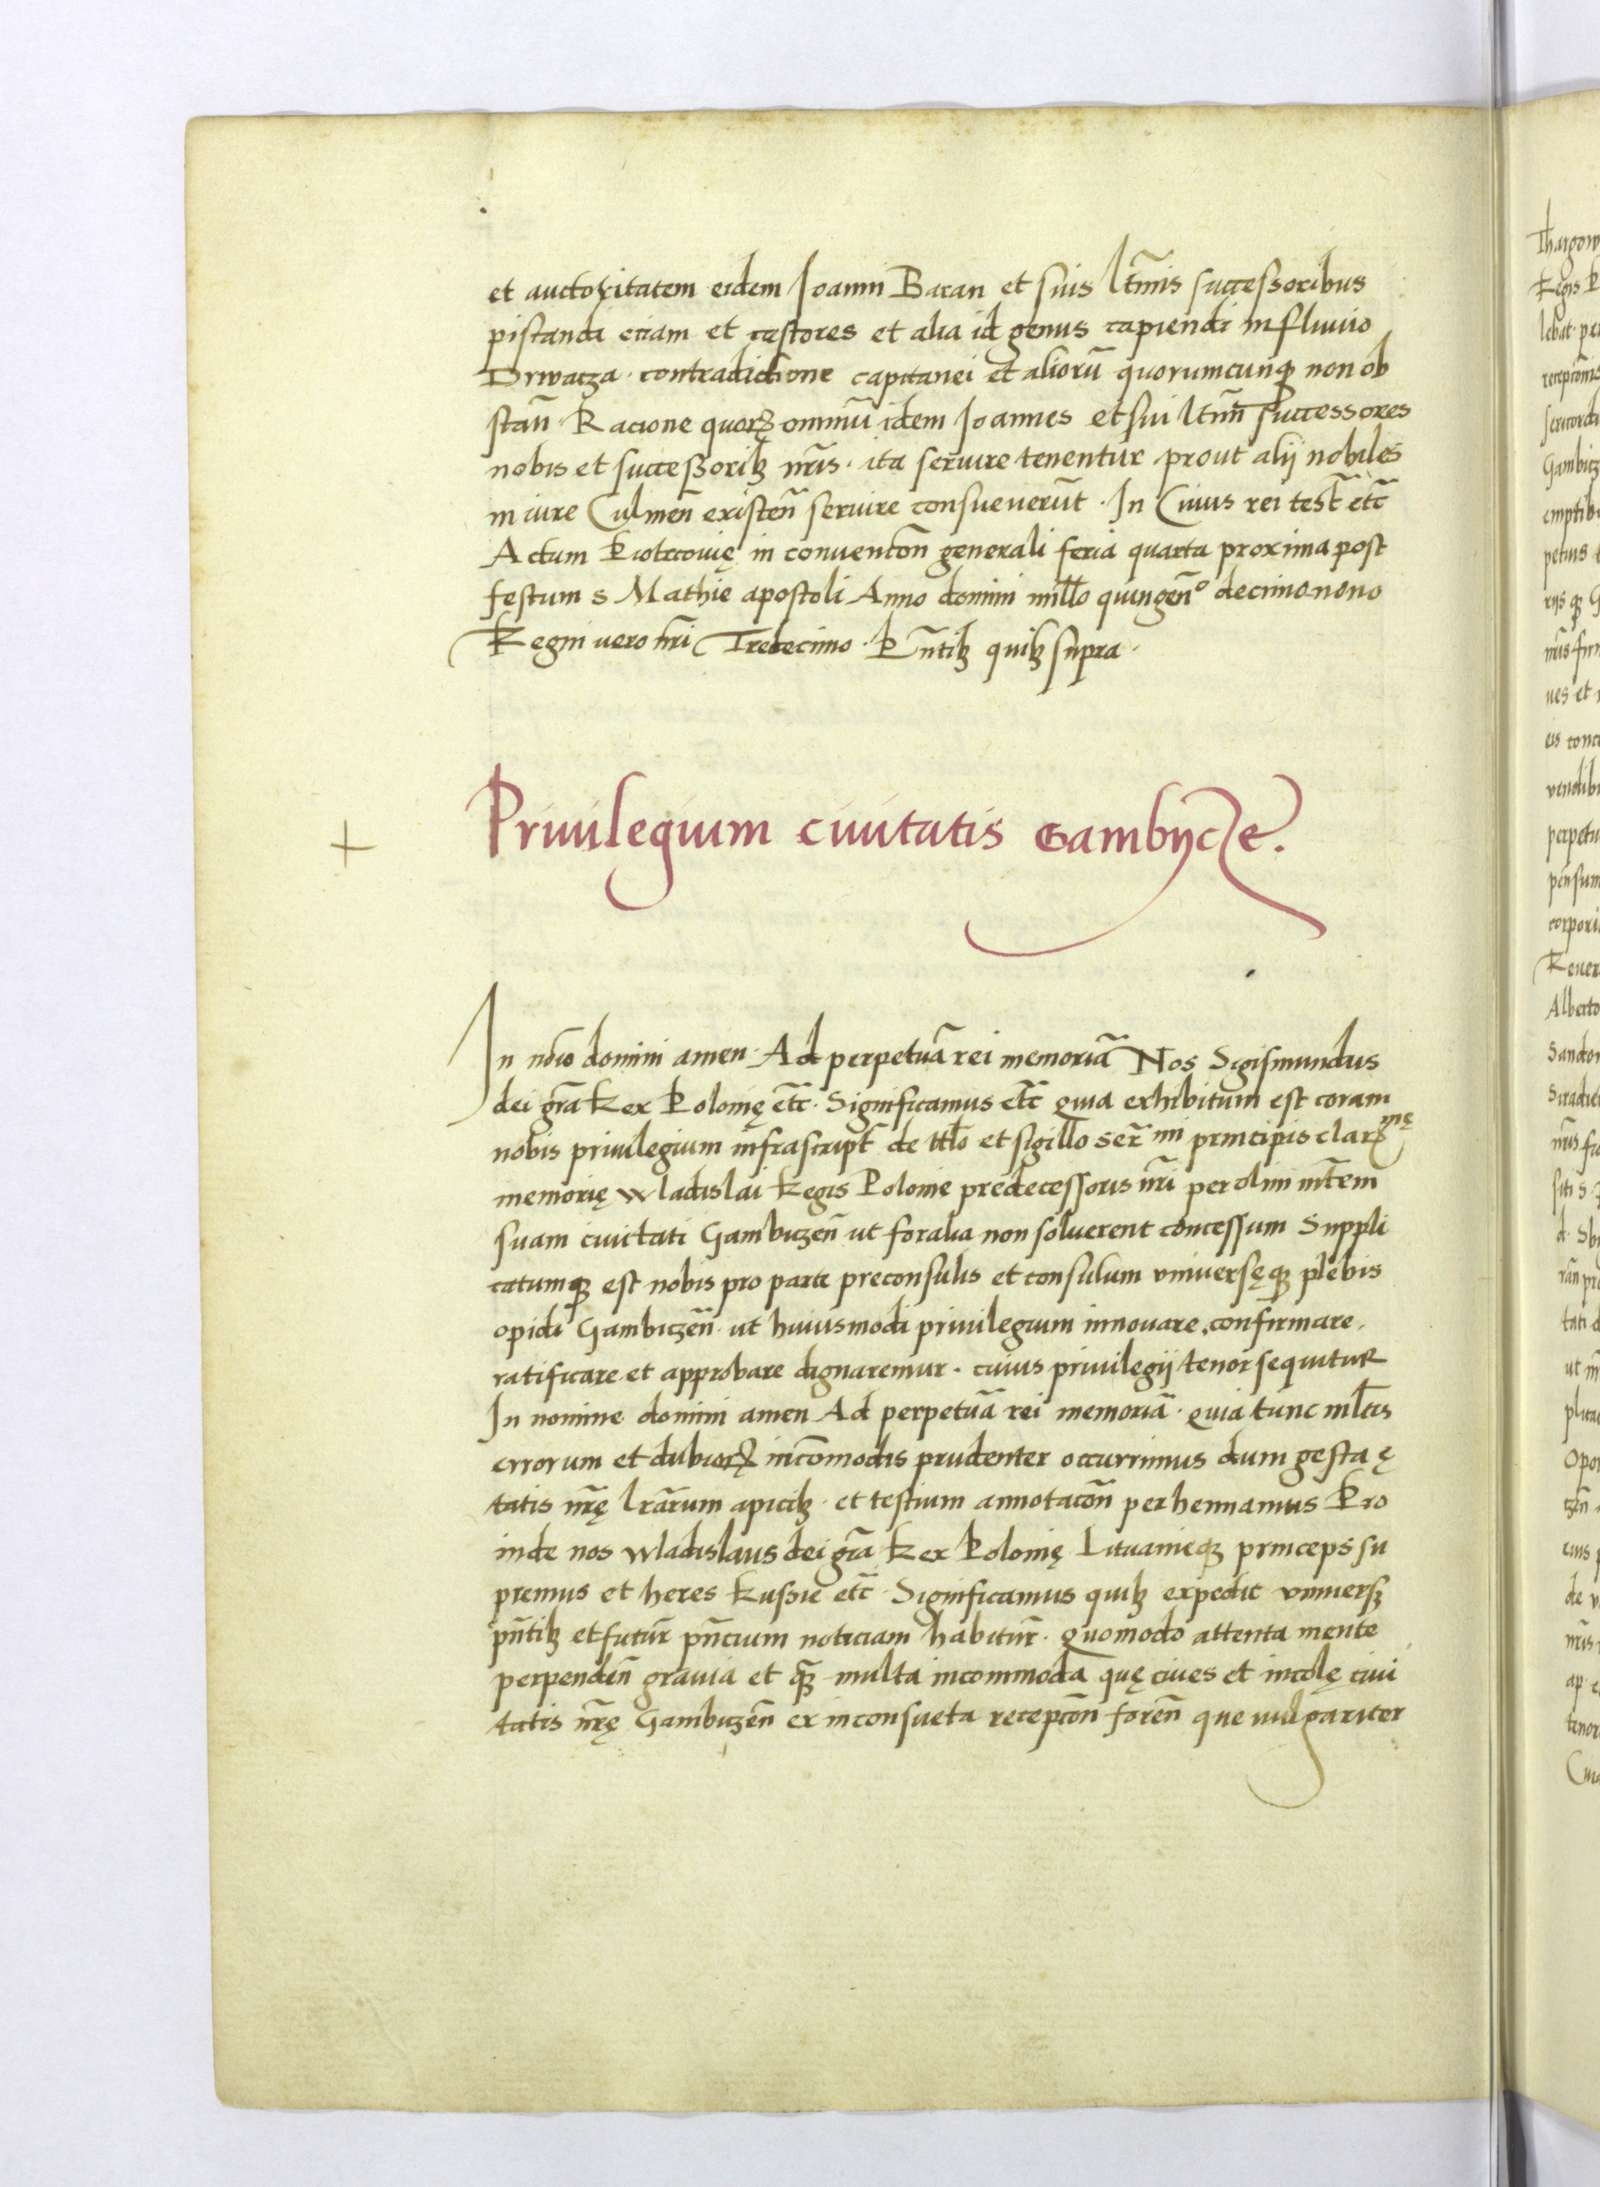 et auctoritatem eidem Joanni Baran et suis ltīmis successoribus
piscandi eciam et castores et alia id genus capiendi in fluvio
Drwacza · contradictione capitanei et aliorū quorumcunqꝫ non ob
stañ · Racione quorꝫ omniū idem Joannes et sui ltīmi successores
nobis et successoribꝫ nr̄is · ita servire tenentur prout alij nobiles
in iure Culmen̄ existen̄ servire consueverūt · In Cuius rei test̄ etc̄
Actum Piotrcovię in conventōn generali feria quarta proxima post
festum s Mathie apostoli Anno domini mill̄o quingen̄º decimonono
Regni vero nr̄i Tredecimo · Pn̄tibꝫ quibꝫ supra ·
Privilegium civitatis Gambycze.
In nōie domini amen · Ad perpetuā rei memoriā Nos Sigismundus
dei gr̄a Rex Polonię etc̄ · Significamus etc̄ quia exhibitum est coram
nobis privilegium infrascript̄ de tt̄lo et sigillo ser̄ mi principis clarꝫ mę
memorię Wladislai Regis Polonie predecessoris nr̄i per olim mt̄em
suam civitati Gambiczen̄ ut foralia non solverent concessum Suppli
catumqꝫ est nobis pro parte preconsulis et consulum universęqꝫ plebis
opidi Gambiczen̄ · ut huiusmodi privilegium innovare, confirmare,
ratificare et approbare dignaremur · cuius privilegij tenor sequitur
In nomine domini amen Ad perpetuā rei memoriā · quia tunc ml̄tis
errorum et dubiorꝫ incōmodis prudenter occurrimus dum gesta ę
tatis nr̄ę lr̄arum apicibꝫ · et testium annotacōn perhennamus Pro
inde nos Wladislaus dei gr̄a Rex Polonię Lituanieqꝫ princeps su
premus et heres Russie etc̄ · Significamus quibꝫ expedit universꝫ
pn̄tibꝫ et futur̄ pn̄cium noticiam habitur̄ · Quomodo attenta mente
perpenden̄ gravia et qꝫ multa incommoda quę cives et incolę civi
tatis nr̄ę Gambiczen̄ ex inconsueta recepcōn foren̄ que vulgariter